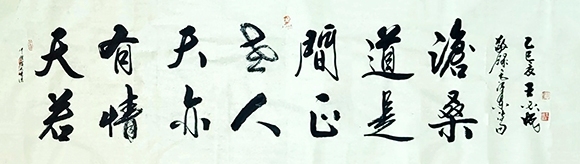 天若
有情
天亦
老人
間正
道是
滄桑
乙巳夏王
敬錄毛澤東詩句